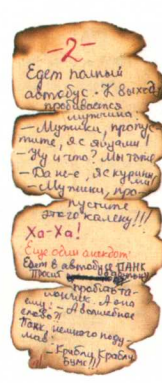 -2-
Едет полный
автобус. К выходу
пробивается
мужчина:
— Мужики, пропус-
тите, я с яйцами!
— Ну и что? Мы тоже
— Да не-е, я с куриными!
— Мужики, про-
пустите
этого калеку!!!
Ха-Ха!
Еще один анекдот:
Едет в автобусе ПАНК
Просит
пробить та-
лончик. А она
ему: А волшебное
слово?!
Панк, немного поду-
мав:
— Крабли, Краблу
Бумс!!!